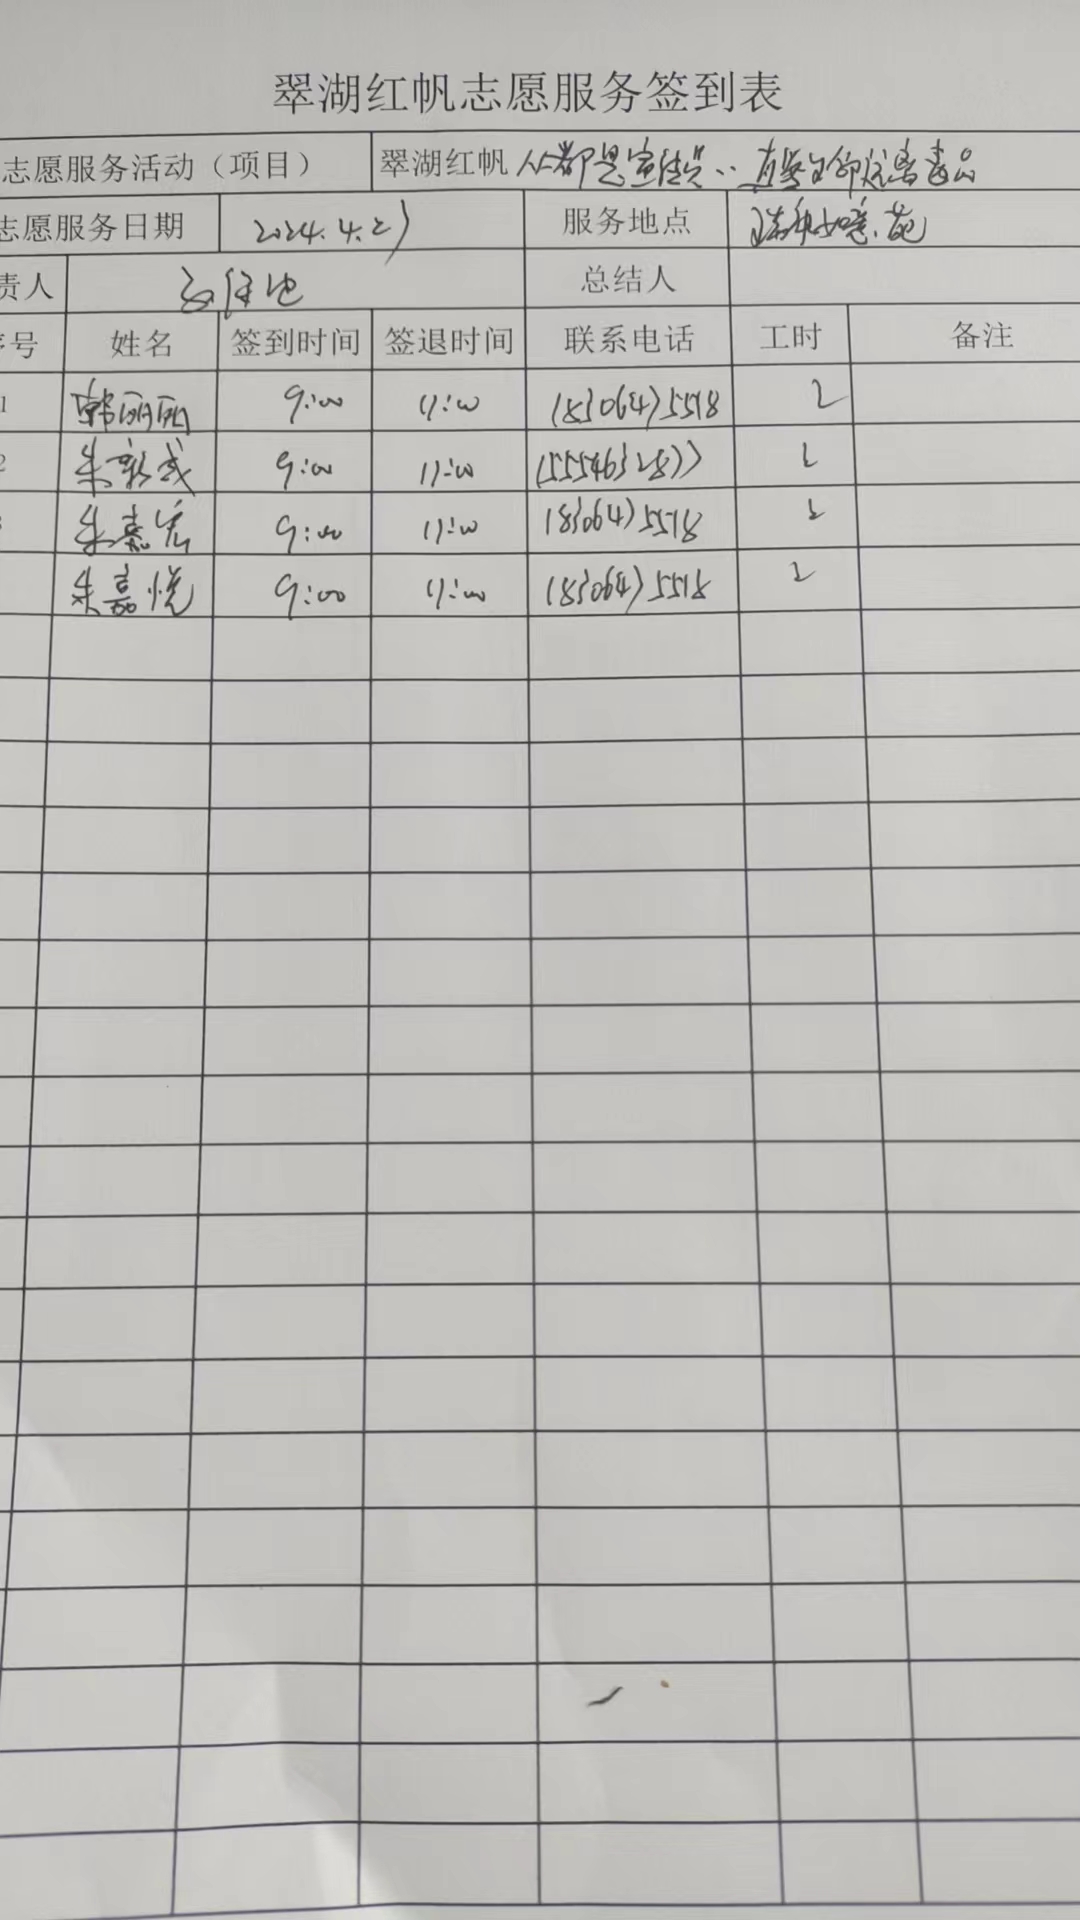 翠湖红帆志愿服务签到表
志愿服务活动（项目） 翠湖红帆 人人都是宣传员
志愿服务日期 2024.4.27 服务地点 瑞和如意苑
责人 总结人
序号 姓名 签到时间 签退时间 联系电话 工时 备注
1 韩丽丽 9:00 11:00 18306475518 2
2 朱新武 9:00 11:00 15554632877 2
朱嘉宏 9:00 11:00 18306475518 2
朱嘉悦 9:00 11:00 18306475518 2